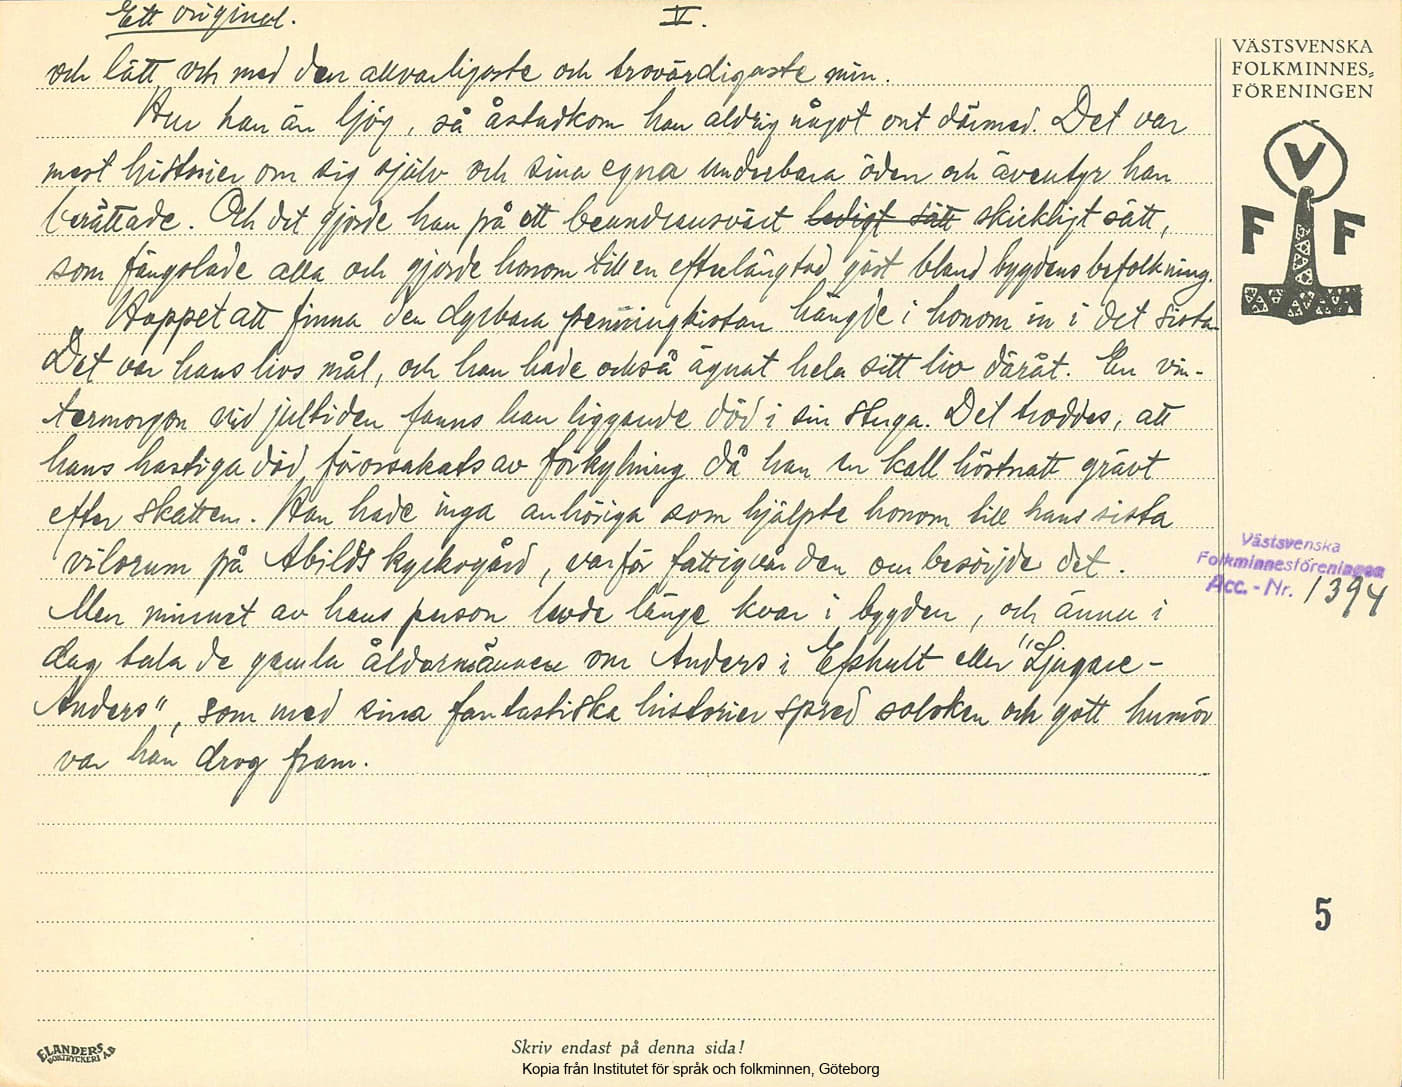 Ett original.
V.
och lätt och med den allvarligaste och trovärdigaste min.
Hur han än ljög, så åstadkom han aldrig något ont därmed. Det var
mest historier om sig själv och sina egna underbara öden och äventyr han
berättade. Och det gjorde han på ett beundransvärt ledigt sätt skickligt sätt,
som fängslade alla och gjorde honom till en efterlängtad gäst bland bygdens befolkning.
Hoppet att finna den dyrbara penningkistan hängde i honom in i det sista
Det var hans livs mål, och han hade också ägnat hela sitt liv däråt. En vin-
termorgon vid jultiden fanns han liggande död i sin stuga. Det troddes, att
hans hastiga död förorsakats av förkylning då han en kall höstnatt grävt
efter skatten. Han hade inga anhöriga som hjälpte honom till hans sista
vilorum på Abilds kyrkogård, varför fattigvården ombesörjde det.
Men minnet av hans person levde länge kvar i bygden, och ännu i
dag tala de gamla åldermännen om Anders i Efshult eller "Ljugare-
Anders", som med sina fantastiska historier spred solsken och gott humör
var han drog fram.
VÄSTSVENSKA
FOLKMINNES-
FÖRENINGEN
V
F F
Västsvenska
Folkminnesföreningen
Acc.-Nr. 1394
5
ELANDERS
BOKTRYCKERI A.B
Skriv endast på denna sida!
Kopia från Institutet för språk och folkminnen, Göteborg